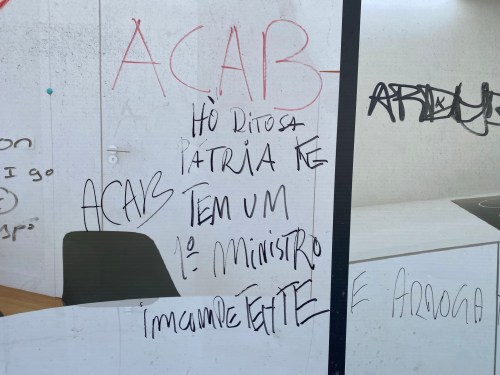 ACAB
HÒ DITOSA
PÁTRIA KE
ACAB
TEM UM
1º MINISTRO
imcompETENTE
E ARROGA
on
I go